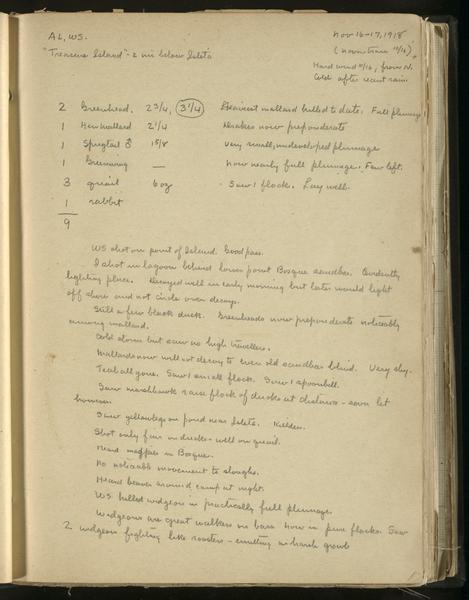 AL, WS.
Nov 16-17, 1918
"Treasure Island" - 2 mi below Isleta
(Noon time 11/16)
Hard wind 11/16, from N.
Cold after recent rain.
2 Greenhead. 2 3/4, 3 1/4 Heaviest mallard killed to date. Full plumage
1 Hen mallard 2 1/4 Drakes now preponderate
1 Sprigtail ♂ 1 5/8 Very small, undeveloped plumage
1 Greenwing — Now nearly full plumage. Few left.
3 quail 6 oz Saw 1 flock. Lay well.
1 rabbit
9
WS shot on point of Island. Good pass.
I shot in lagoon behind lower point Bosque sandbar. Evidently
lighting place. Decoyed well in early morning but later would light
off shore and not circle over decoys.
Still a few black duck. Greenheads now preponderate noticeably
among mallard.
Cold storm but saw no high travellers.
Mallards now will not decoy to even old sandbar blind. Very shy.
Teal all gone. Saw 1 small flock. Saw 1 spoonbill.
Saw marshhawk raise flock of ducks at distance - soon let
Saw yellowlegs on pond near Isleta. Killdee.
Shot only fair on ducks - well on quail.
Heard magpies in Bosque.
No noticeable movement to sloughs.
Heard beaver around camp at night.
WS killed widgeon in practically full plumage.
Widgeons are great walkers on bars. Now in pure flocks. Saw
2 widgeon fighting like roosters - emitting a harsh growl